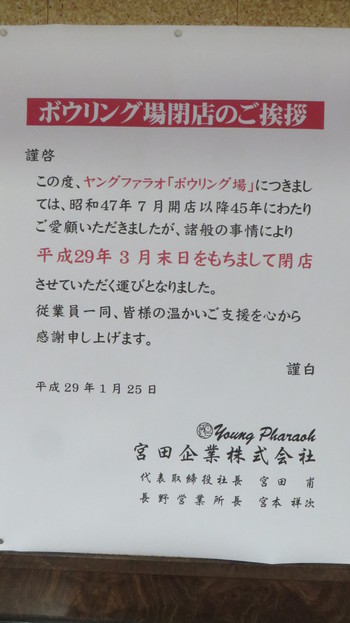 ボウリング場閉店のご挨拶
謹啓
この度、ヤングファラオ「ボウリング場」につきまし
ては、昭和47年７月開店以降45年にわたり
ご愛顧いただきましたが、諸般の事情により
平成29年３月末日をもちまして閉店
させていただく運びとなりました。
従業員一同、皆様の温かいご支援を心から
感謝申し上げます。
謹白
平成29年1月25日
Young Pharaoh
宮田企業株式会社
代表取締役社長 宮田 甫
長野営業所長 宮本 祥次